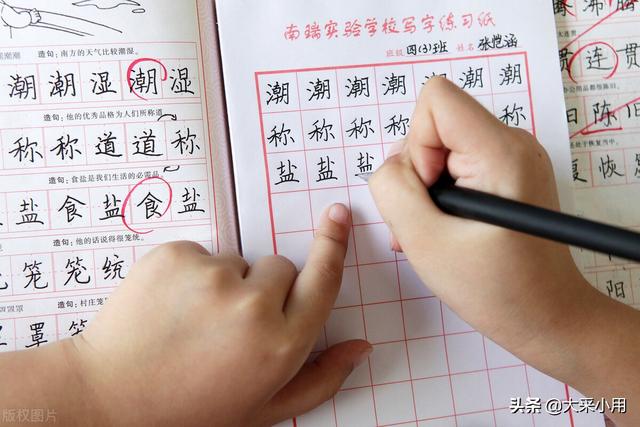 潮潮 造句：南方的天气比较潮湿。
潮潮湿潮湿
造句：他的优秀品格为人们所称道
称称道道称
造句：食盐是我们生活的必需品。
盐食盐食盐
造句：他的话说得很笼统。
笼笼统
造句：村庄笼
罩
南瑞实验学校写字练习纸
班级 四(3)班 姓名 张恺涵
潮潮潮潮潮潮潮
称称称称称
盐盐盐
贯连贯
办公用品都很陈旧。
旧陈
处于恢复当中。
复恢复
阳
版权图片
头条 @大采小用